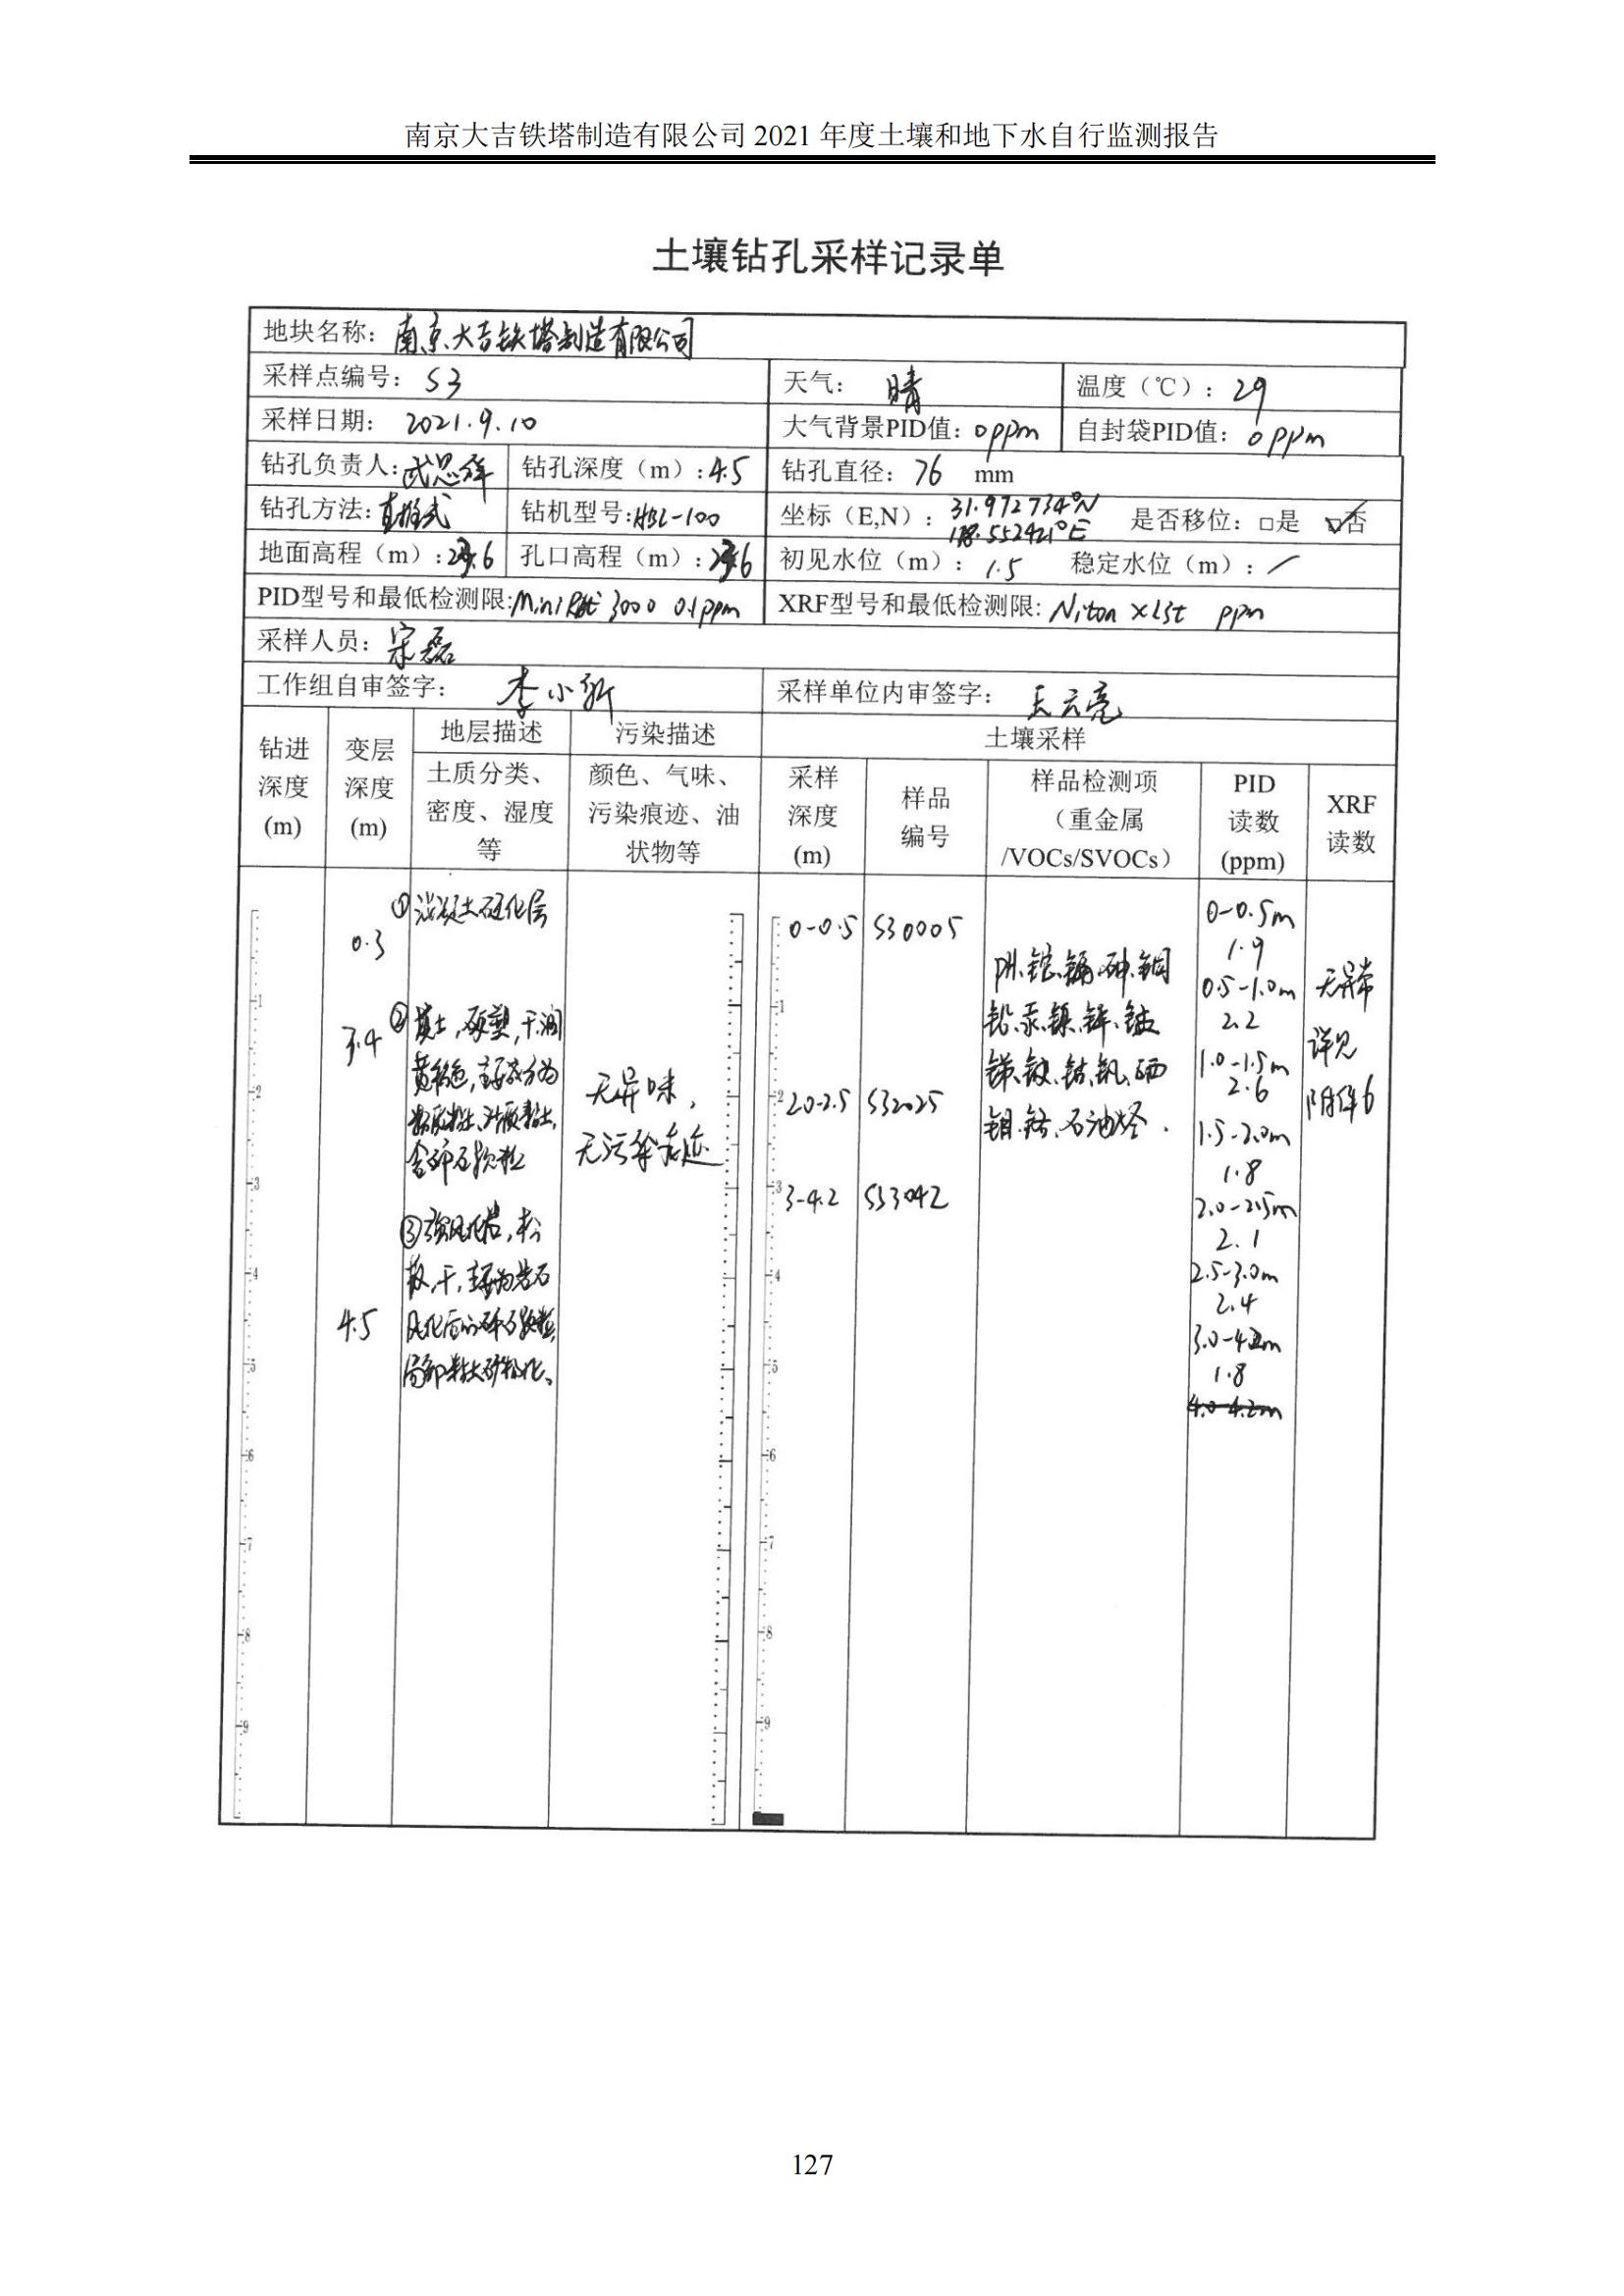 南京大吉铁塔制造有限公司 2021 年度土壤和地下水自行监测报告
土壤钻孔采样记录单
地块名称：南京大吉铁塔制造有限公司
采样点编号：S3 天气：晴 温度（℃）：29
采样日期：2021.9.10 大气背景PID值：0ppm 自封袋PID值：0ppm
钻孔负责人：武恩祥 钻孔深度（m）：4.5 钻孔直径：76 mm
钻孔方法：直推式 钻机型号：HBL-100 坐标（E,N）：31.972734°N 118.552421°E 是否移位：□是 ☑否
地面高程（m）： 孔口高程（m）： 初见水位（m）：1.5 稳定水位（m）：/
PID型号和最低检测限：MiniRAE 3000 0.1ppm XRF型号和最低检测限：Niton XL5t ppm
采样人员：宋磊
工作组自审签字：李小 采样单位内审签字：云亮
钻进深度(m) 变层深度(m) 地层描述 污染描述 土壤采样
土质分类、密度、湿度等 颜色、气味、污染痕迹、油状物等 采样深度(m) 样品编号 样品检测项（重金属/VOCs/SVOCs） PID读数(ppm) XRF读数
0.3
3.4
4.5
①混凝土硬化层
②黄土，硬塑，干润
黄褐色，主要成分为
粉质黏土，
含碎石颗粒
③强风化岩，
干，主要为岩石
风化后的碎石颗粒，
局部黏土矿物化。
无异味，
无污染痕迹
0-0.5 S30005
2.0-2.5 S32025
3-4.2 S33042
pH、铬、镉、砷、铜
铅、汞、镍、锌、锰
锑、铍、钴、钒、硒
钼、铊、石油烃.
0-0.5m
1.9
0.5-1.0m
2.2
1.0-1.5m
2.6
1.5-2.0m
1.8
2.0-2.5m
2.1
2.5-3.0m
2.4
3.0-4.2m
1.8
4.0-4.2m
无异常
详见
附件6
1
2
3
4
5
6
7
8
9
1
2
3
4
5
6
7
8
9
127